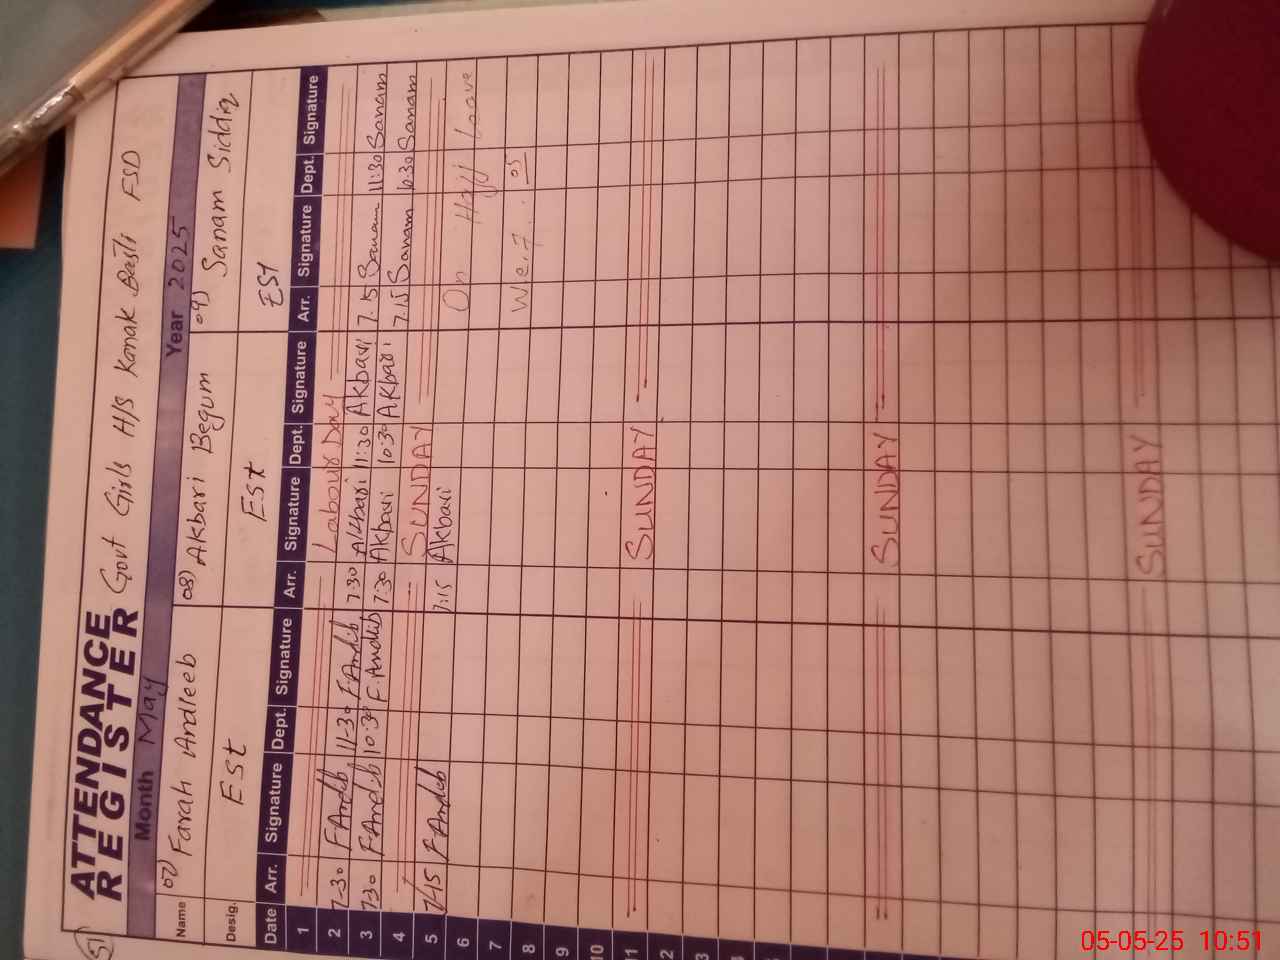 51
ATTENDANCE
REGISTER
Govt Girls H/S Konak Basti FSD
Month May Year 2025
Name 07) Farah Andleeb 08) Akbari Begum 09) Sanam Siddiq
Desig. ESt ESt ESt
Date Arr. Signature Dept. Signature Arr. Signature Dept. Signature Arr. Signature Dept. Signature
1 Labour Day
2 7-30 F.Andlib 11-30 F.Andlib 7:30 Akbari 11:30 Akbari 7.15 Sanam 11:30 Sanam
3 7.30 F.Andlib 10:30 F.Andlib 7:30 Akbari 10:30 Akbari 7.15 Sanam 10.30 Sanam
4 SUNDAY
5 7:15 F.Andlib 7:15 Akbari On Hajj Leave
6
7 W.e.f 05
8
9
10
11 SUNDAY
SUNDAY
SUNDAY
05-05-25 10:51